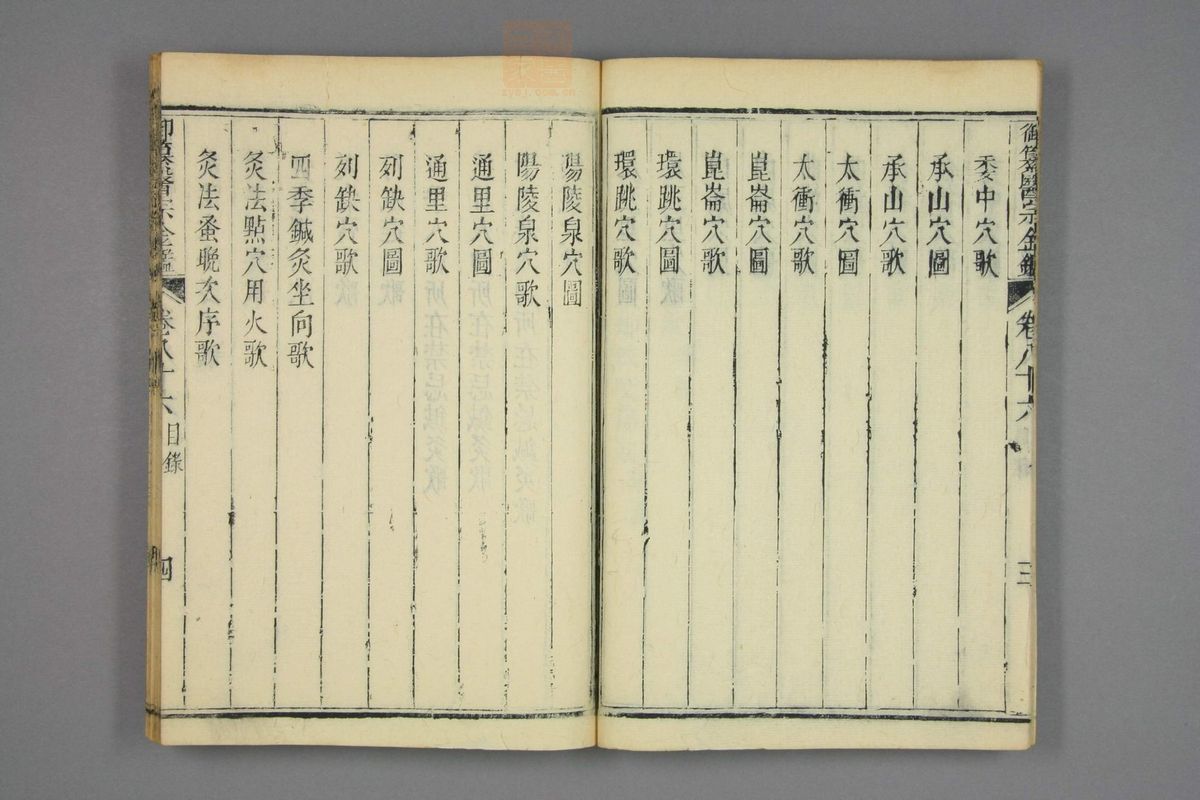 御纂醫宗金鑑 卷八十六 三
委中穴歌
承山穴圖
承山穴歌
太衝穴圖
太衝穴歌
崑崙穴圖
崑崙穴歌
環跳穴圖
環跳穴歌
陽陵泉穴圖
陽陵泉穴歌
通里穴圖
通里穴歌
列缺穴圖
列缺穴歌
四季鍼灸坐向歌
灸法點穴用火歌
灸法蚤晚次序歌
御纂醫宗金鑑 卷八十六 目錄 四